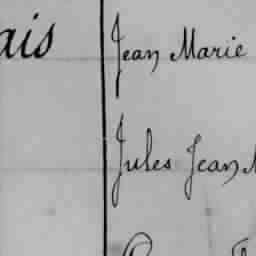 ais
Jean Marie
Jules Jean